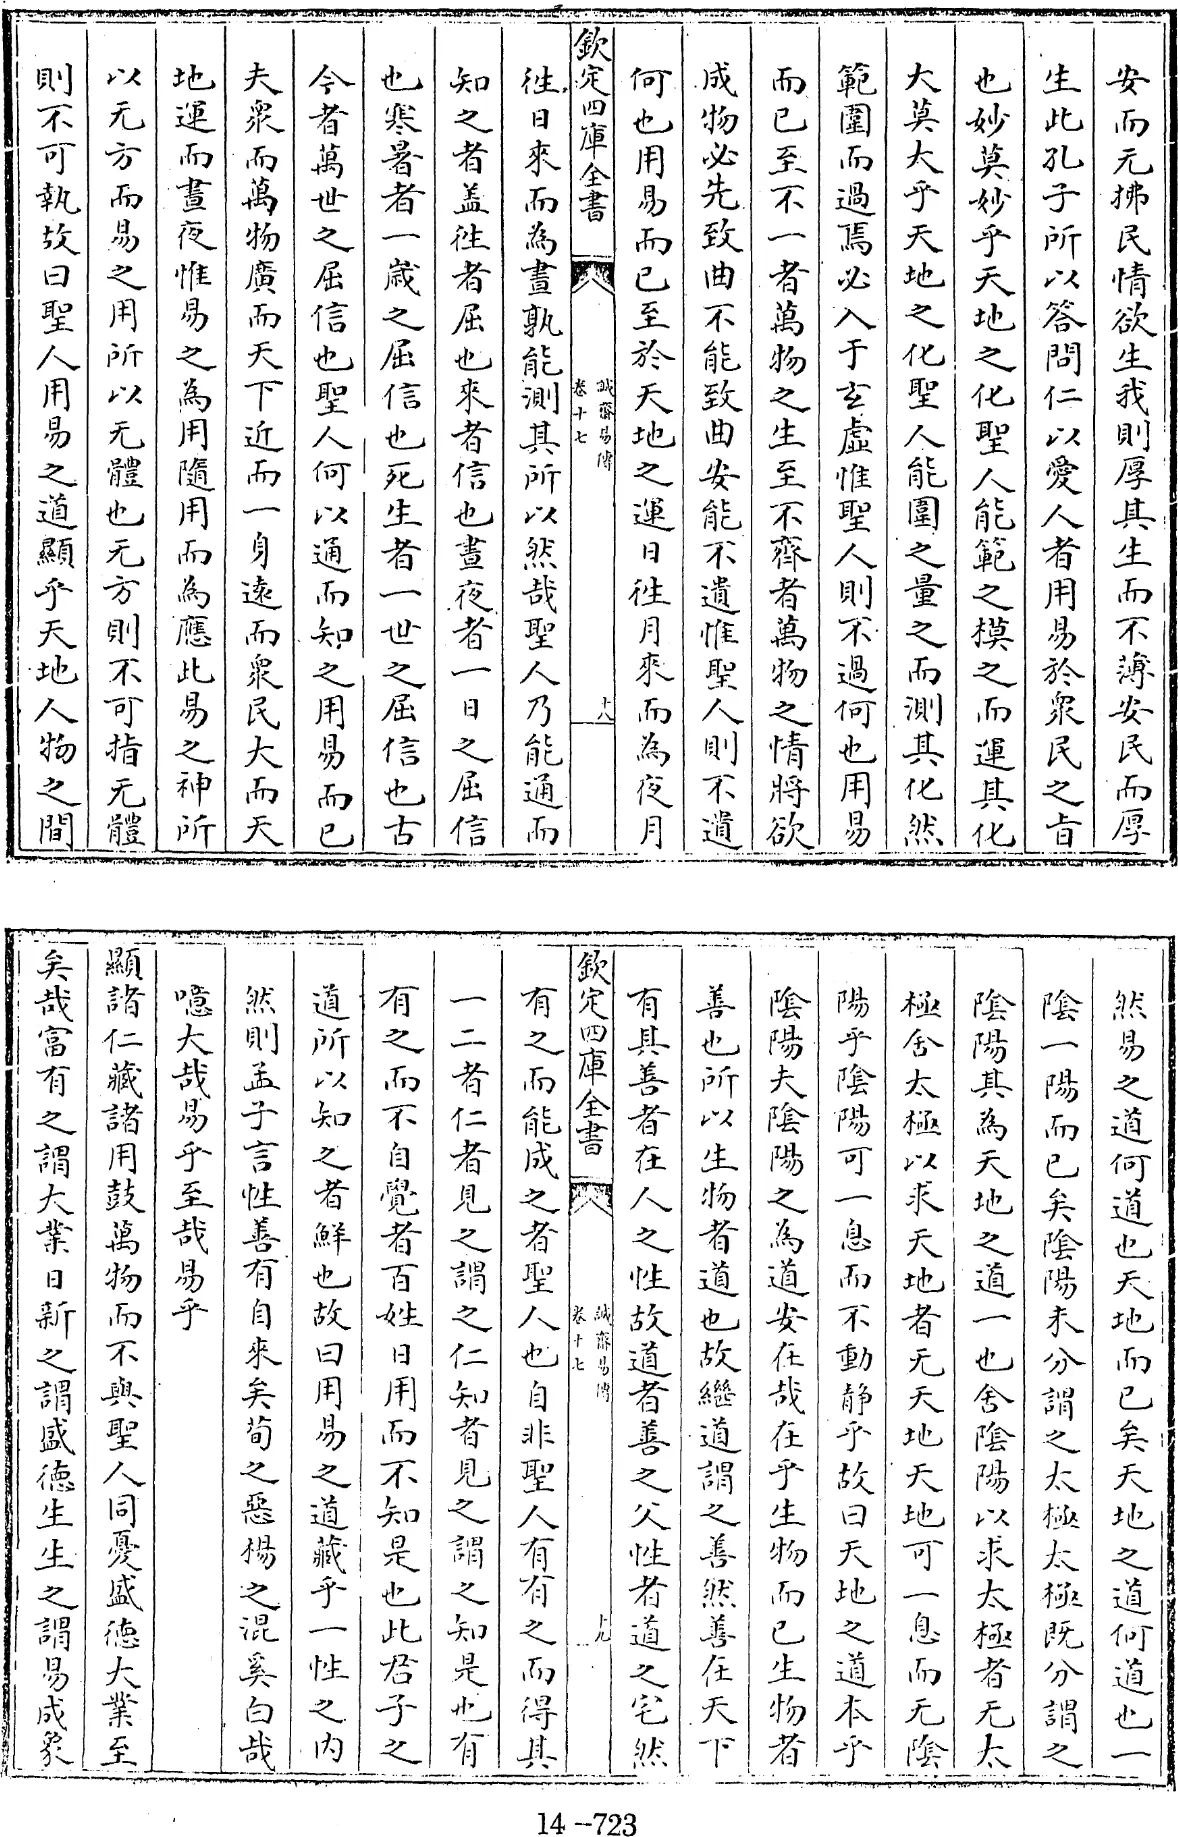 安而元拂民情欲生我則厚其生而不薄安民而厚
生此孔子所以答問仁以愛人者用易於衆民之旨
也妙莫妙乎天地之化聖人能範之模之而運其化
大莫大乎天地之化聖人能圍之量之而測其化然
範圍而過焉必入于玄虛惟聖人則不過何也用易
而已至不一者萬物之生至不齊者萬物之情將欲
成物必先致曲不能致曲安能不遺惟聖人則不遺
何也用易而已至於天地之運日徃月來而為夜月
欽定四庫全書
誠齋易傳
卷十七
十八
徃日來而為晝孰能測其所以然哉聖人乃能通而
知之者盖徃者屈也來者信也晝夜者一日之屈信
也寒暑者一嵗之屈信也死生者一世之屈信也古
今者萬世之屈信也聖人何以通而知之用易而已
夫衆而萬物廣而天下近而一身逺而衆民大而天
地運而晝夜惟易之為用隨用而為應此易之神所
以无方而易之用所以无體也无方則不可指无體
則不可執故曰聖人用易之道顯乎天地人物之間
然易之道何道也天地而已矣天地之道何道也一
陰一陽而已矣陰陽未分謂之太極太極既分謂之
陰陽其為天地之道一也舍陰陽以求太極者无太
極舍太極以求天地者无天地天地可一息而无陰
陽乎陰陽可一息而不動靜乎故曰天地之道本乎
陰陽夫陰陽之為道安在哉在乎生物而已生物者
善也所以生物者道也故繼道謂之善然善在天下
有其善者在人之性故道者善之父性者道之宅然
欽定四庫全書
誠齋易傳
卷十七
十九
有之而能成之者聖人也自非聖人有有之而得其
一二者仁者見之謂之仁知者見之謂之知是也有
有之而不自覺者百姓日用而不知是也此君子之
道所以知之者鮮也故曰用易之道藏乎一性之内
然則孟子言性善有自來矣荀之惡楊之混奚白哉
噫大哉易乎至哉易乎
顯諸仁藏諸用鼓萬物而不與聖人同憂盛徳大業至
矣哉富有之謂大業日新之謂盛徳生生之謂易成象
14-723